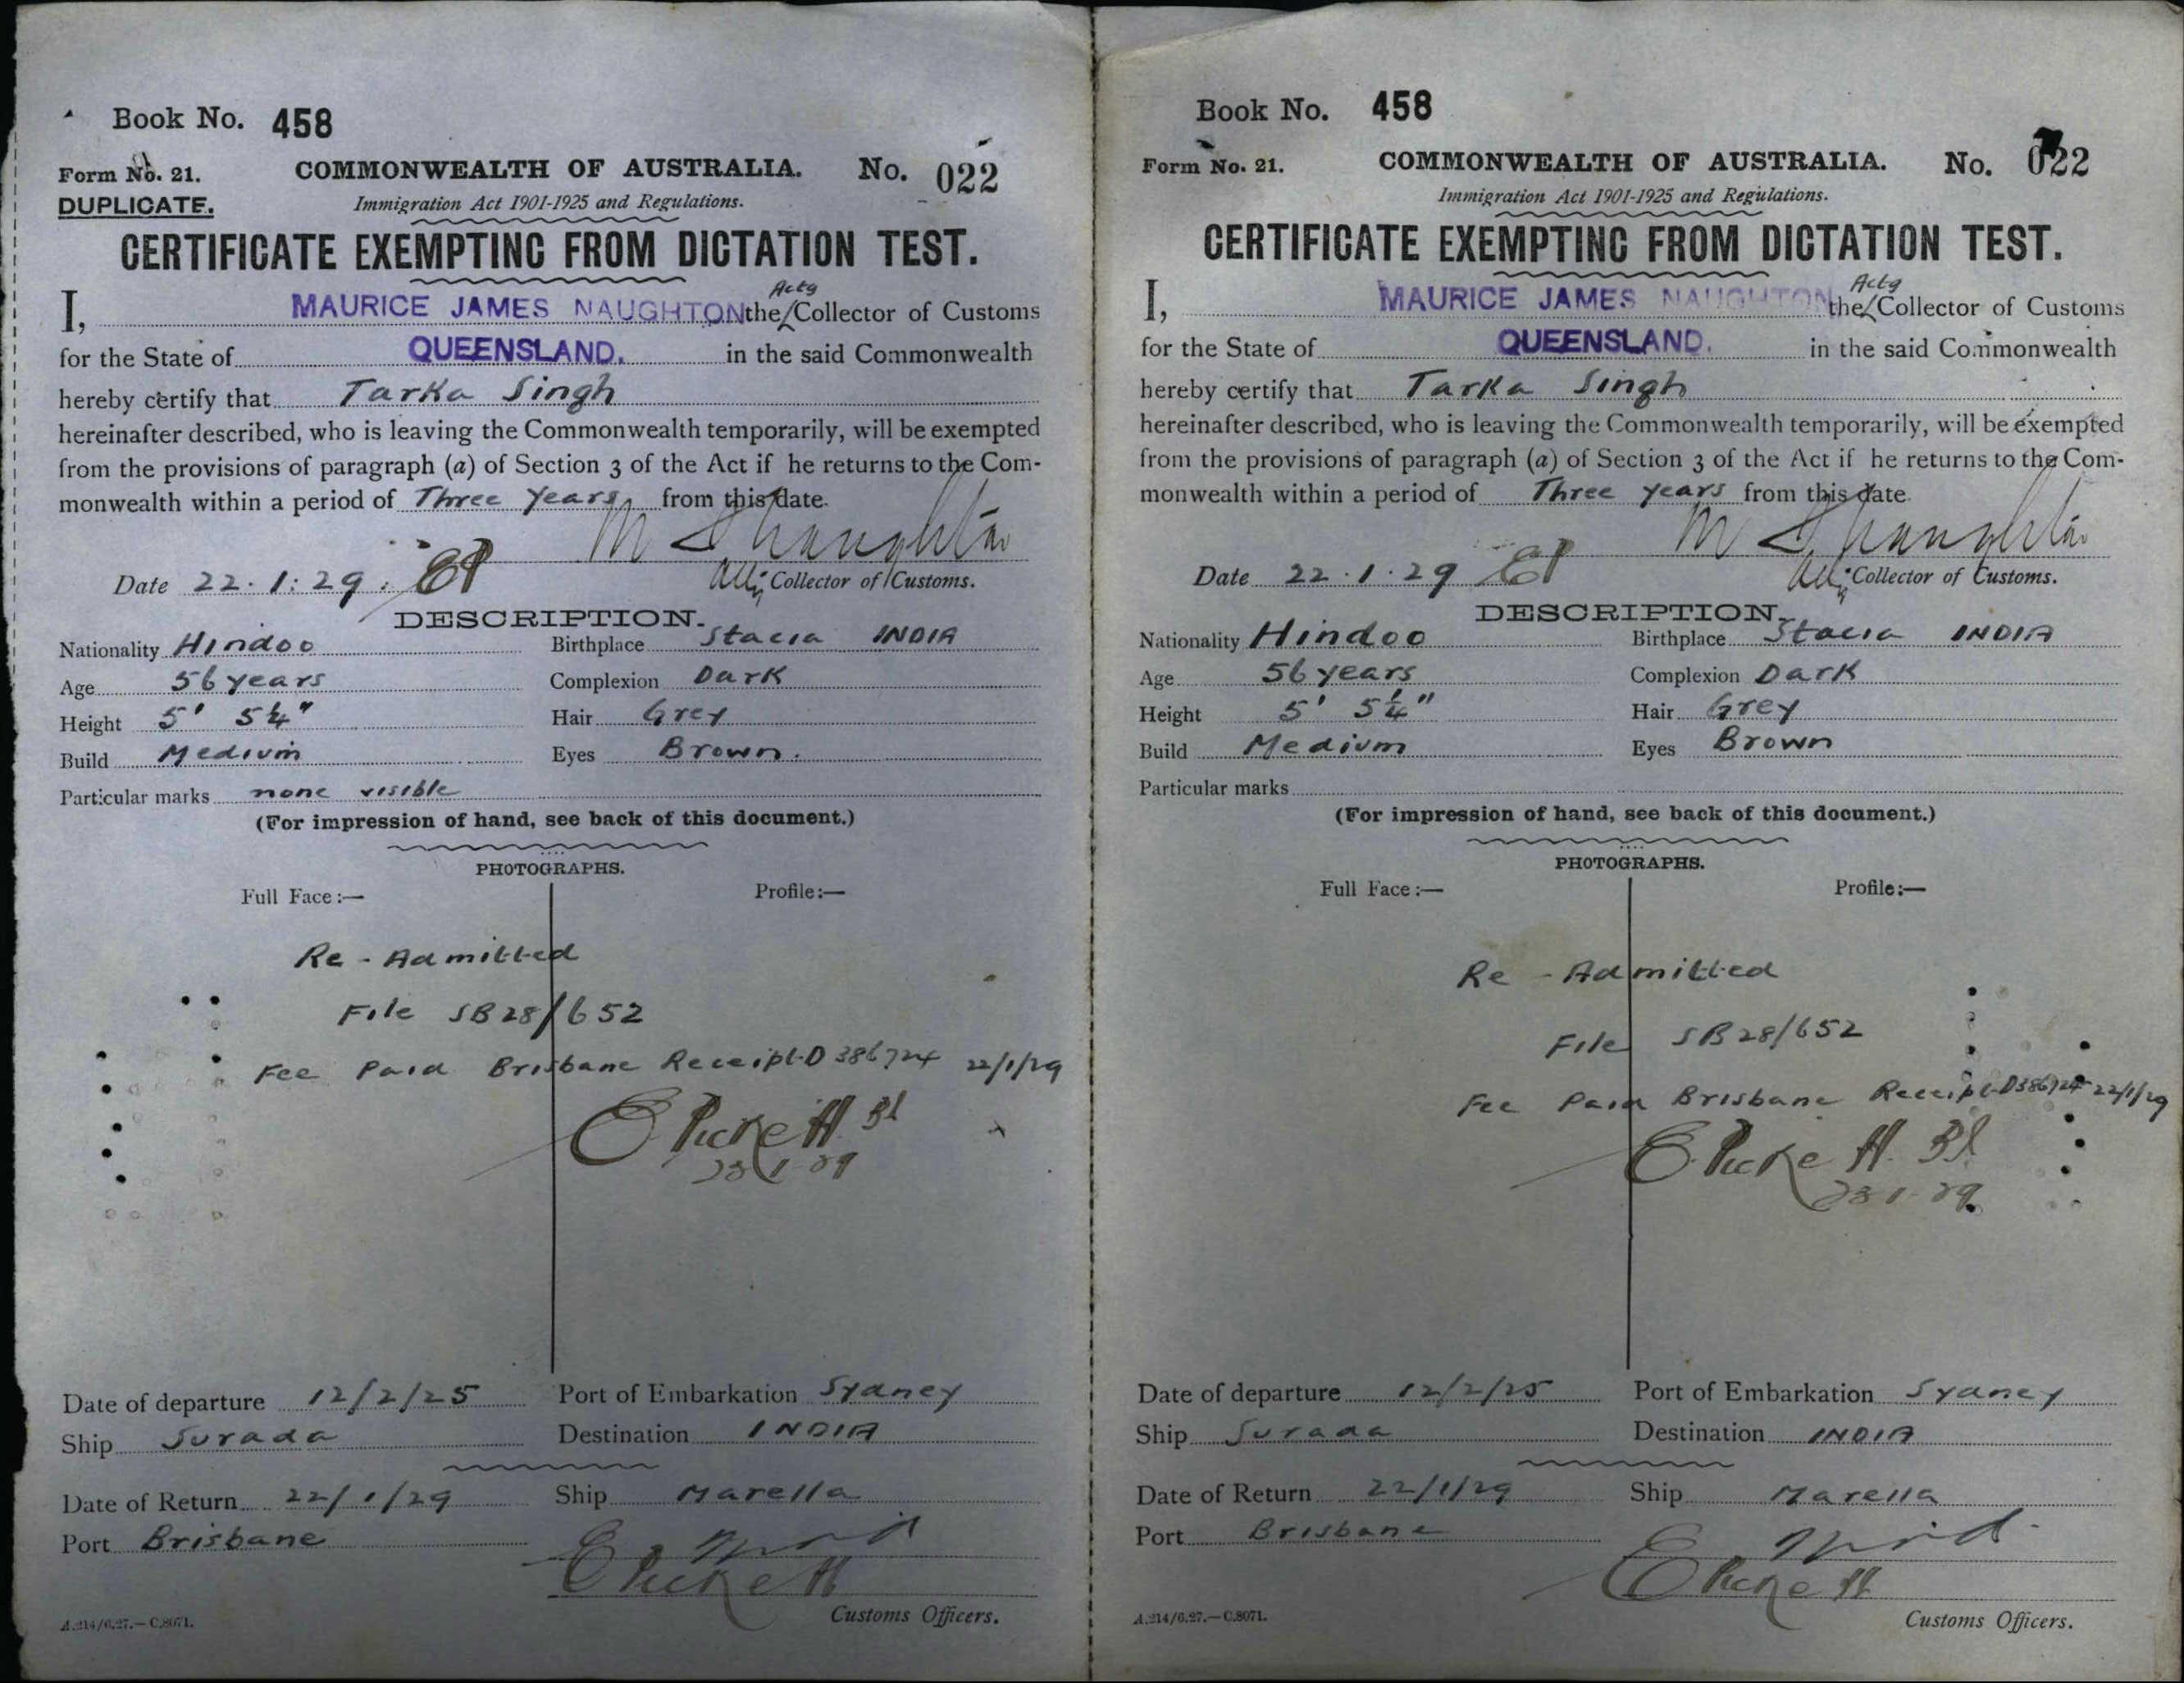 Book No. 458
Form No. 21. COMMONWEALTH OF AUSTRALIA. No. 022
DUPLICATE. Immigration Act 1901-1925 and Regulations.
CERTIFICATE EXEMPTING FROM DICTATION TEST.
Actg
I, MAURICE JAMES NAUGHTON the Collector of Customs
for the State of QUEENSLAND. in the said Commonwealth
hereby certify that Tarka Singh
hereinafter described, who is leaving the Commonwealth temporarily, will be exempted
from the provisions of paragraph (a) of Section 3 of the Act if he returns to the Com-
monwealth within a period of Three Years from this date.
M J Naughton
Date 22.1.29. EP Actg Collector of Customs.
DESCRIPTION.
Nationality Hindoo Birthplace Stacia INDIA
Age 56 years Complexion Dark
Height 5' 5¼" Hair Grey
Build Medium Eyes Brown.
Particular marks none visible
(For impression of hand, see back of this document.)
PHOTOGRAPHS.
Full Face:— Profile:—
Re-Admitted
File SB28/652
Fee Paid Brisbane Receipt D386724 22/1/29
E Pickett
23-1-29
Date of departure 12/2/25 Port of Embarkation Sydney
Ship Surada Destination INDIA
Date of Return 22/1/29 Ship Marella
Port Brisbane
E Pickett
Customs Officers.
A.214/6.27.—C.8071.
Book No. 458
Form No. 21. COMMONWEALTH OF AUSTRALIA. No. 022
Immigration Act 1901-1925 and Regulations.
CERTIFICATE EXEMPTING FROM DICTATION TEST.
Actg
I, MAURICE JAMES NAUGHTON the Collector of Customs
for the State of QUEENSLAND. in the said Commonwealth
hereby certify that Tarka Singh
hereinafter described, who is leaving the Commonwealth temporarily, will be exempted
from the provisions of paragraph (a) of Section 3 of the Act if he returns to the Com-
monwealth within a period of Three years from this date.
M J Naughton
Date 22.1.29 EP Actg Collector of Customs.
DESCRIPTION.
Nationality Hindoo Birthplace Stacia INDIA
Age 56 years Complexion Dark
Height 5' 5¼" Hair Grey
Build Medium Eyes Brown
Particular marks
(For impression of hand, see back of this document.)
PHOTOGRAPHS.
Full Face:— Profile:—
Re-Admitted
File SB28/652
Fee Paid Brisbane Receipt D386724 22/1/29
E. Pickett
23-1-29.
Date of departure 12/2/25 Port of Embarkation Sydney
Ship Surada Destination INDIA
Date of Return 22/1/29 Ship Marella
Port Brisbane
E Pickett
Customs Officers.
A.214/6.27.—C.8071.